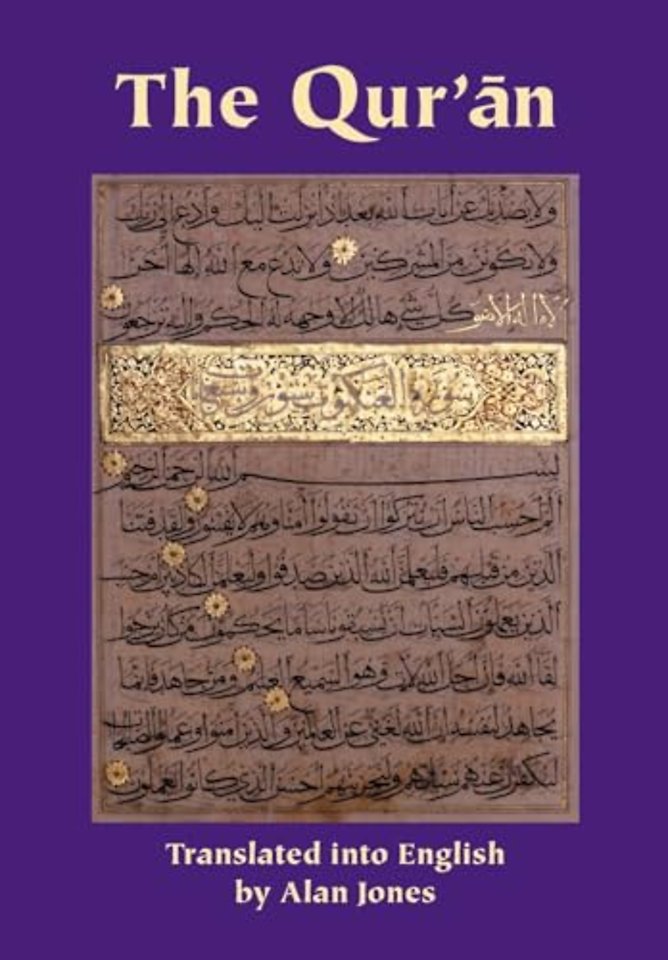 The Qur’ān
ولا يصدنك عن آيات الله بعد إذ أنزلت إليك وادع إلى ربك
ولا تكونن من المشركين ولا تدع مع الله إلها آخر
لا إله إلا هو كل شيء هالك إلا وجهه له الحكم وإليه ترجعون
سورة العنكبوت ستون وتسع
بسم الله الرحمن الرحيم
الم أحسب الناس أن يتركوا أن يقولوا آمنا وهم لا يفتنون ولقد فتنا
الذين من قبلهم فليعلمن الله الذين صدقوا وليعلمن الكاذبين أم حسب
الذين يعملون السيئات أن يسبقونا ساء ما يحكمون من كان يرجوا
لقاء الله فإن أجل الله لآت وهو السميع العليم ومن جاهد فإنما
يجاهد لنفسه إن الله لغني عن العالمين والذين آمنوا وعملوا الصالحات
لنكفرن عنهم سيئاتهم ولنجزينهم أحسن الذي كانوا يعملون
Translated into English
by Alan Jones